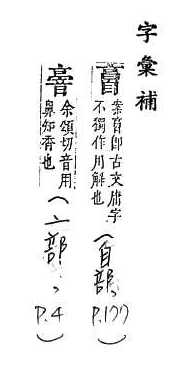 字彙補
案即古文庸字
不獨作用解也
(自部、P.177
余頌切音用
鼻知香也
(亠部、P.4